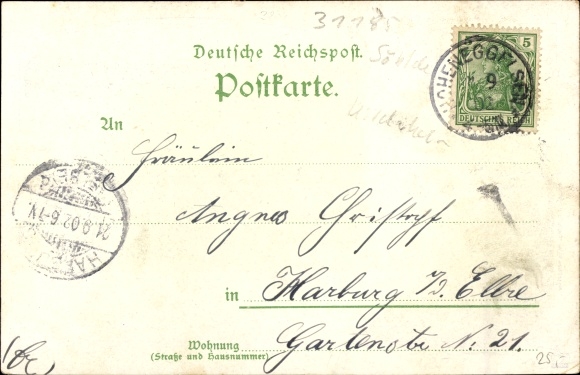 31185
Deutsche Reichspost.
Postkarte.
5
DEUTSCHES REICH
HOHENEGGELSEN
9
An
Fräulein
Agnes Christoph
in Harburg a/d. Elbe
Wohnung Gartenstr. N. 21.
(Straße und Hausnummer)
21.9.02.6-7V.
25,-